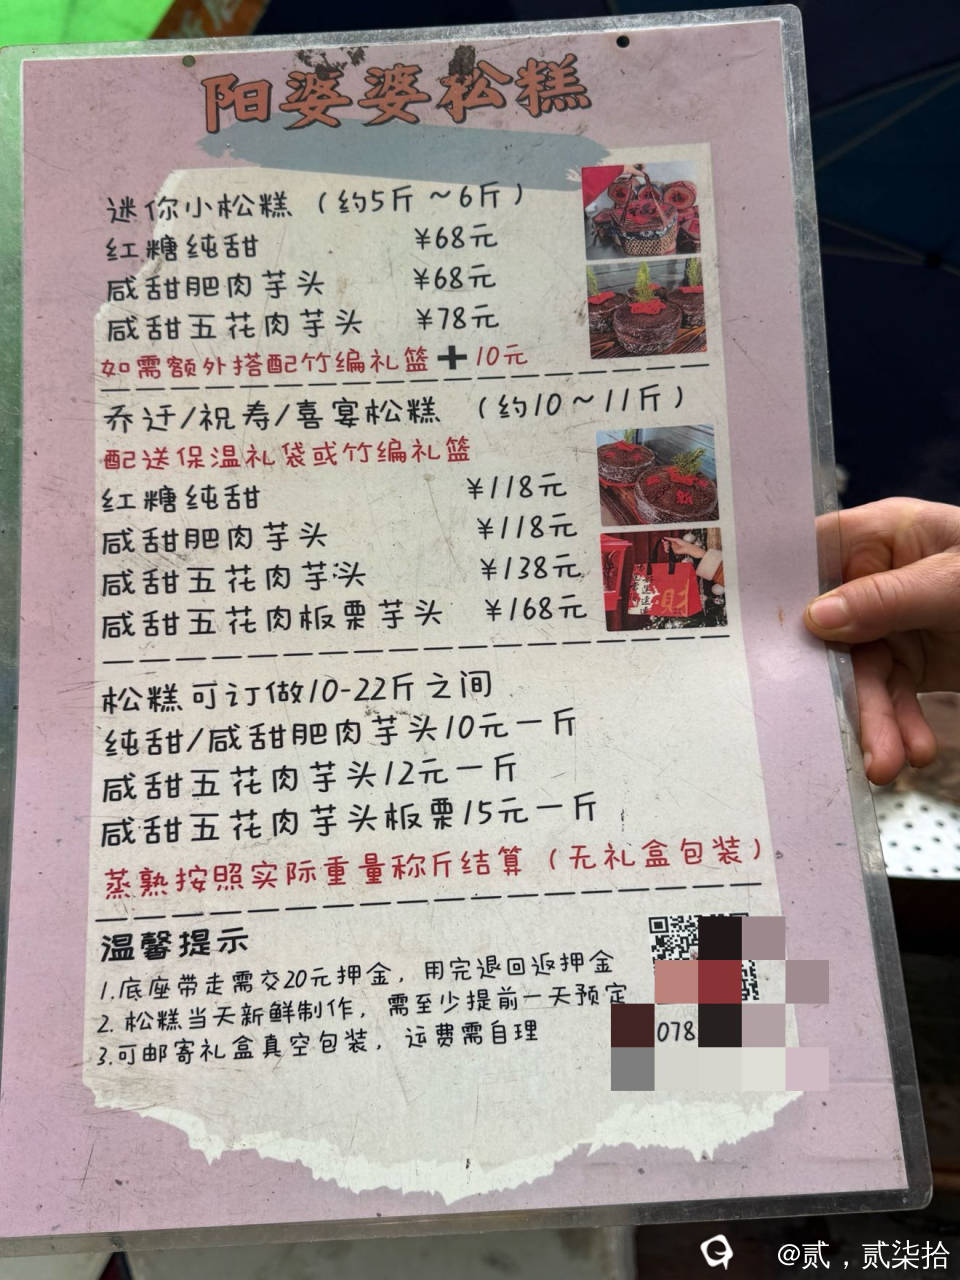 阳婆婆松糕
迷你小松糕（约5斤~6斤）
红糖纯甜 ¥68元
咸甜肥肉芋头 ¥68元
咸甜五花肉芋头 ¥78元
如需额外搭配竹编礼篮+10元
乔迁/祝寿/喜宴松糕（约10~11斤）
配送保温礼袋或竹编礼篮
红糖纯甜 ¥118元
咸甜肥肉芋头 ¥118元
咸甜五花肉芋头 ¥138元
咸甜五花肉板栗芋头 ¥168元
松糕可订做10-22斤之间
纯甜/咸甜肥肉芋头10元一斤
咸甜五花肉芋头12元一斤
咸甜五花肉芋头板栗15元一斤
蒸熟按照实际重量称斤结算（无礼盒包装）
温馨提示
1.底座带走需交20元押金，用完退回返押金
2.松糕当天新鲜制作，需至少提前一天预定
3.可邮寄礼盒真空包装，运费需自理
078
@贰，贰柒拾